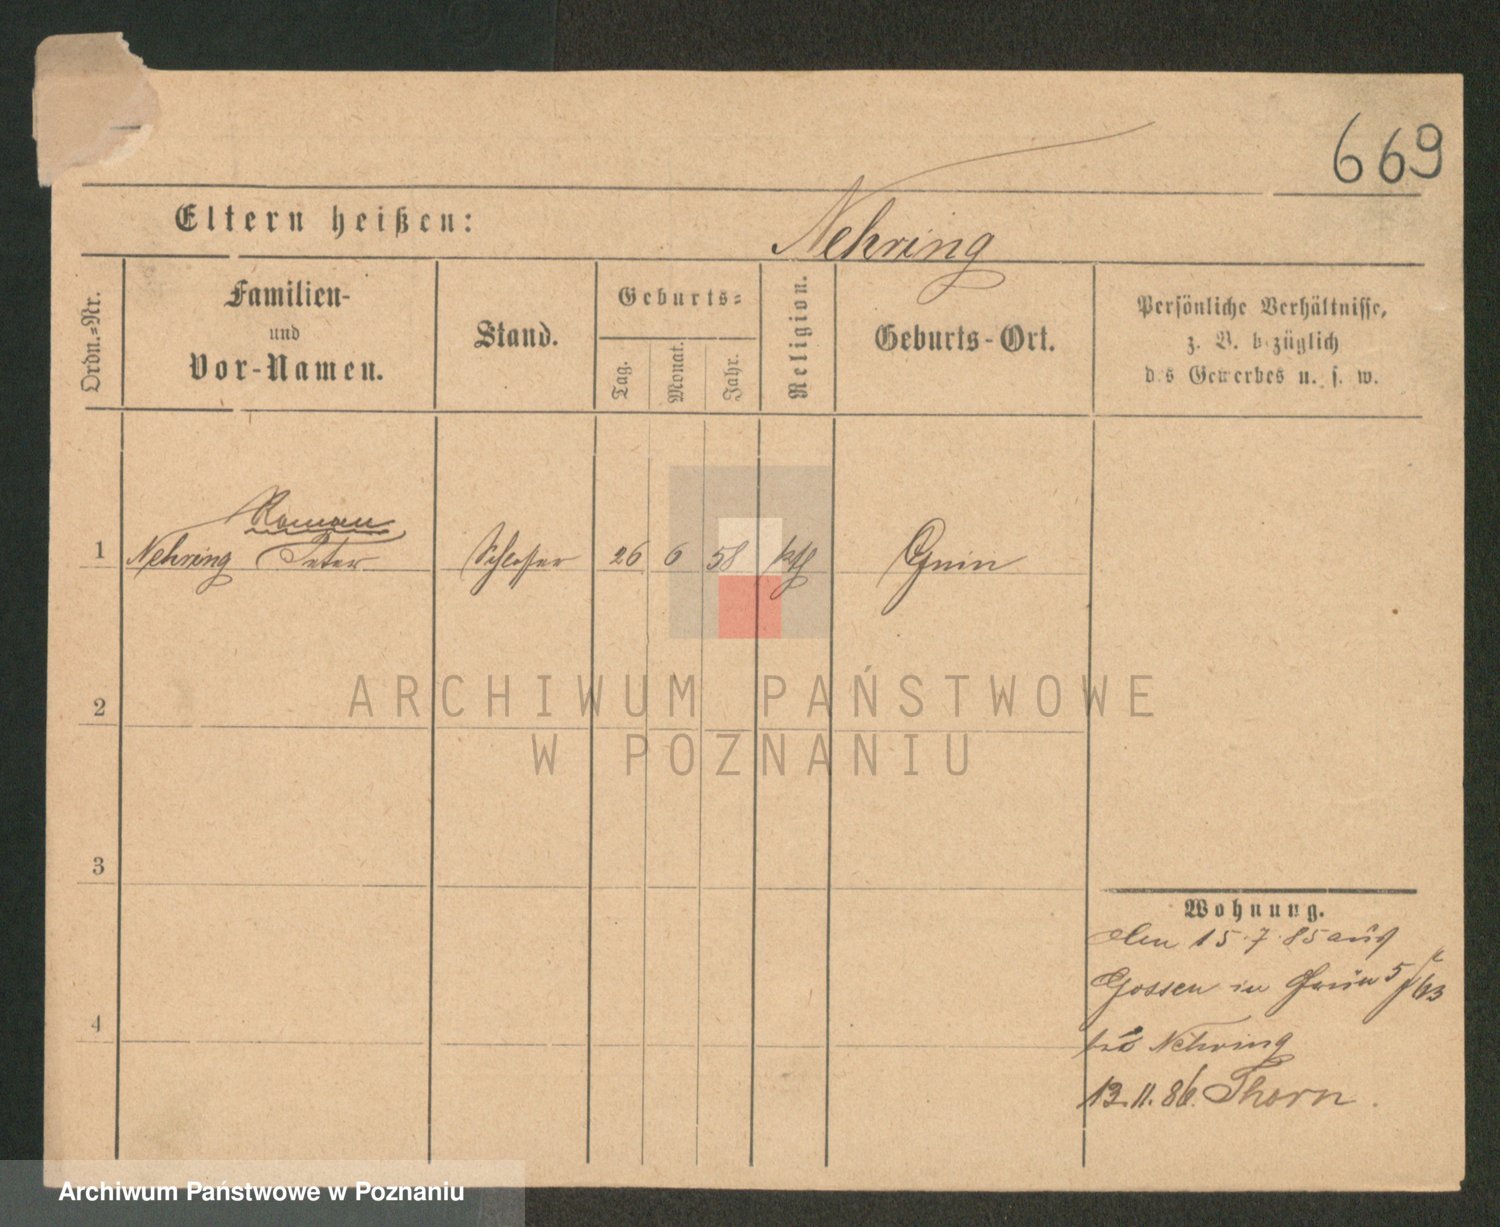 669
Eltern heißen:
Nehring
Ordn.-Nr.
Familien-
und
Vor-Namen.
Stand.
Geburts-
Tag.
Monat.
Jahr.
Religion.
Geburts-Ort.
Persönliche Verhältnisse,
z. B. bezüglich
des Gewerbes u. s. w.
Roman
1 Nehring Peter Schlosser 26 6 58 kth
2
3
4
ARCHIWUM PAŃSTWOWE
W POZNANIU
Wohnung.
Den 15.7.85 aus
Gossen in
bei Nehring
13.11.86. Thorn.
Archiwum Państwowe w Poznaniu